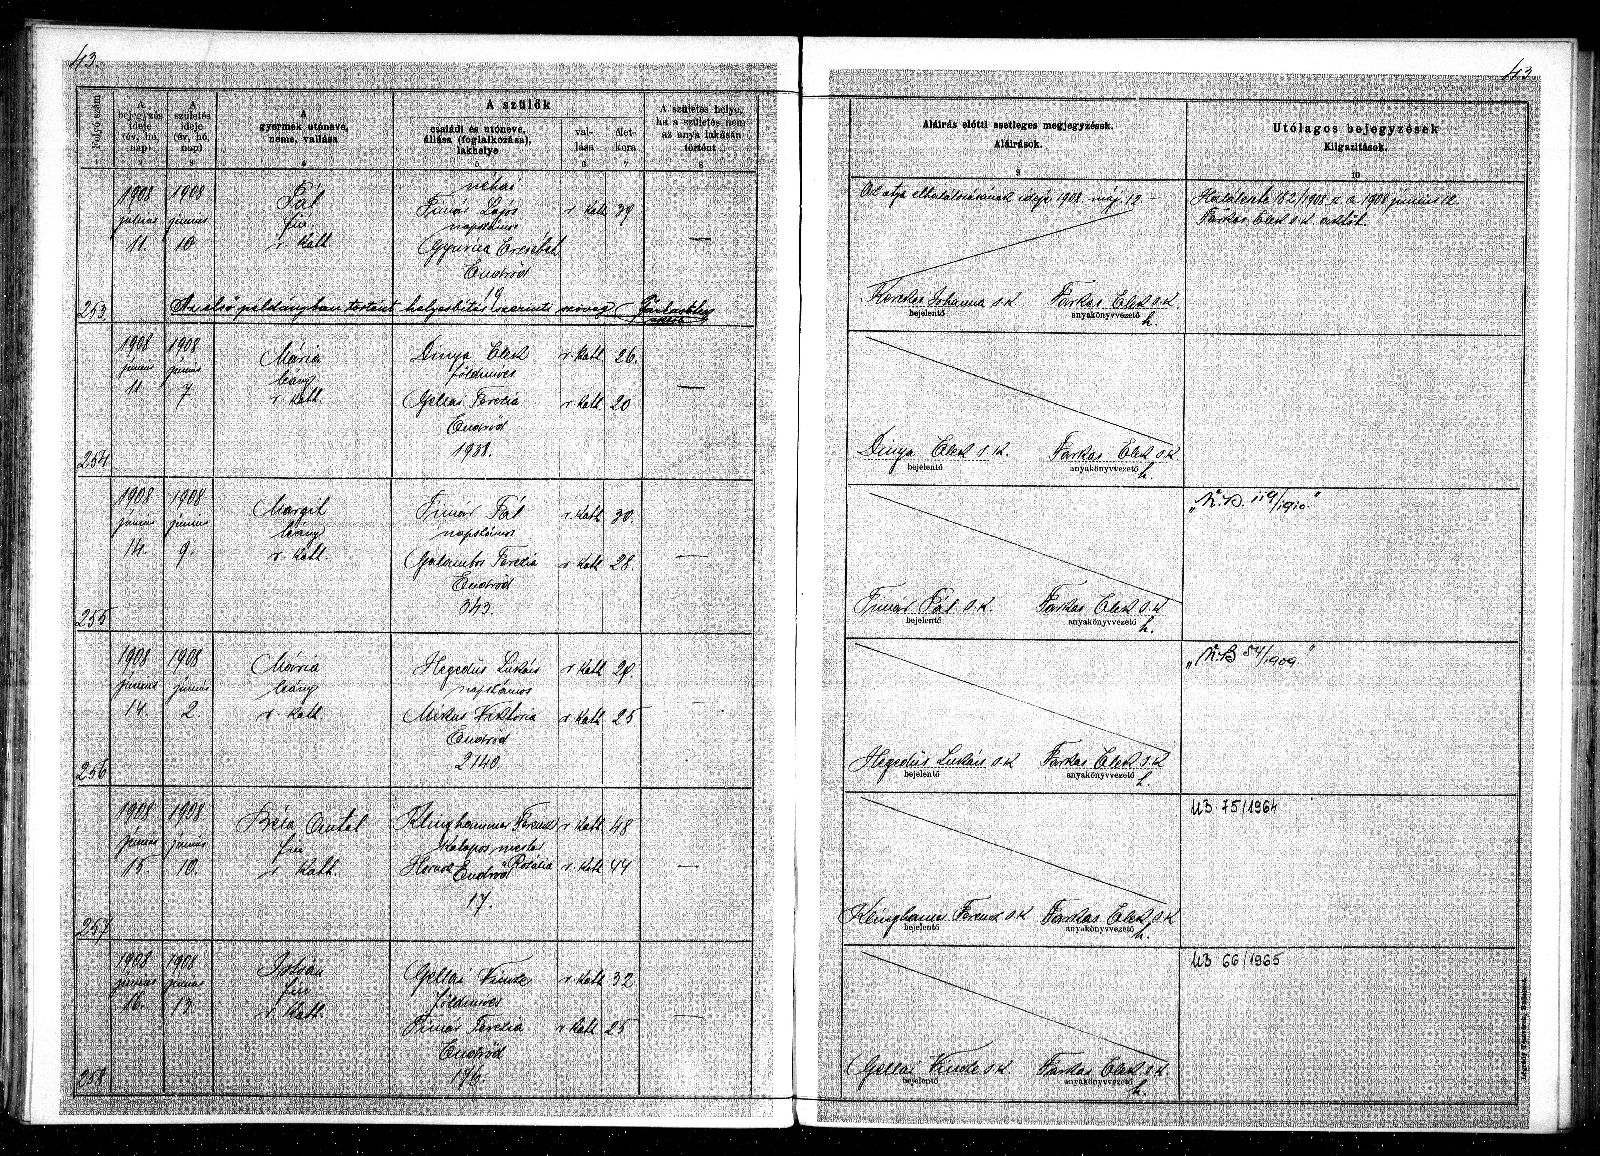 43.
43
Folyó szám
A bejegyzés ideje (év, hó, nap)
A születés ideje (év, hó, nap)
A gyermek utóneve, neme, vallása
A szülők
családi és utóneve, állása (foglalkozása), lakhelye
val-lása
élet-kora
A születés helye, ha a születés nem az anya lakásán történt
Aláírás előtti esetleges megjegyzések.
Aláírások.
Utólagos bejegyzések
Kiigazítások.
3 4 5 6 7 8 9 10
253
1908 június 11.
1908 június 10.
Pál
fiú
r. kath
néhai
Timár Lajos
napszámos
r. kath 39
Gyuricza Erzsébet
Endrőd
19
—
Az első példányban történt helyesbítés szerinti szöveg
Az atya elhalálozásának ideje 1908. máj. 12.
Haláleset 182/1908
a 1908 június 12.
Farkas Elek s.k.
Johanna s.k.
bejelentő
Farkas Elek s.k.
anyakönyvvezető
h.
254
1908 június 11.
1908 június 7
Mária
leány
r. kath.
Dinya Elek
földmíves
r. kath 26.
Gellai Terézia
r. kath 20
Endrőd
1938.
—
Dinya Elek s. k.
bejelentő
Farkas Elek s.k.
anyakönyvvezető
h.
255
1908 június 14.
1908 június 9.
Margit
leány
r. kath.
Timár Pál
napszámos
r. kath 30.
Galambos Terézia
r. kath 28.
Endrőd
343.
—
"N.B. 119/1910"
Timár Pál s.k.
bejelentő
Farkas Elek s.k.
anyakönyvvezető
h.
256
1908 június 14.
1908 június 2.
Mária
leány
r. kath
Hegedüs Lukács
napszámos
r. kath 29.
Viktória
r. kath 25
Endrőd
2140.
—
"N.B 54/1909."
Hegedüs Lukács s.k
bejelentő
Farkas Elek s.k
anyakönyvvezető
h.
257
1908 június 15.
1908 június 10.
Béla Antal
fiú
r. kath.
Klinghammer Ferencz
kalapos mester
r. kath 48
Rozália
r. kath 44
Endrőd
17.
—
UB 75/1964
Klinghammer Ferencz s.k
bejelentő
Farkas Elek s.k
anyakönyvvezető
h.
258
1908 június 16.
1908 június 13.
István
fiú
r. kath.
Gellai Vincze
földmíves
r. kath 32
Timár Terézia
r. kath 25
Endrőd
—
UB 66/1965
Gellai Vincze s.k
bejelentő
Farkas Elek s.k.
anyakönyvvezető
h.